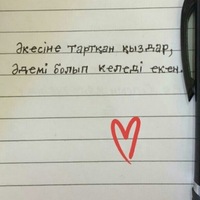 Әкесіне тартқан қыздар,
әдемі болып келеді екен.